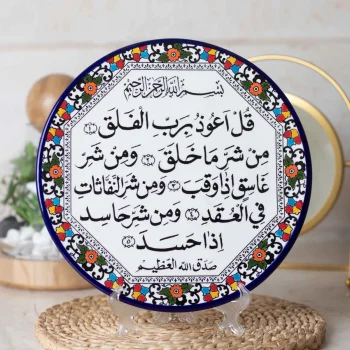 بسم الله الرحمن الرحيم
قُلْ اَعُوذُ بِرَبِّ الْفَلَقِ ﴿١﴾
مِنْ شَرِّ مَا خَلَقَ ﴿٢﴾ وَمِنْ شَرِّ
غَاسِقٍ اِذَا وَقَبَ ﴿٣﴾ وَمِنْ شَرِّ النَّفَّاثَاتِ
فِي الْعُقَدِ ﴿٤﴾ وَمِنْ شَرِّ حَاسِدٍ
اِذَا حَسَدَ ﴿٥﴾
صَدَقَ اللهُ الْعَظِيْم